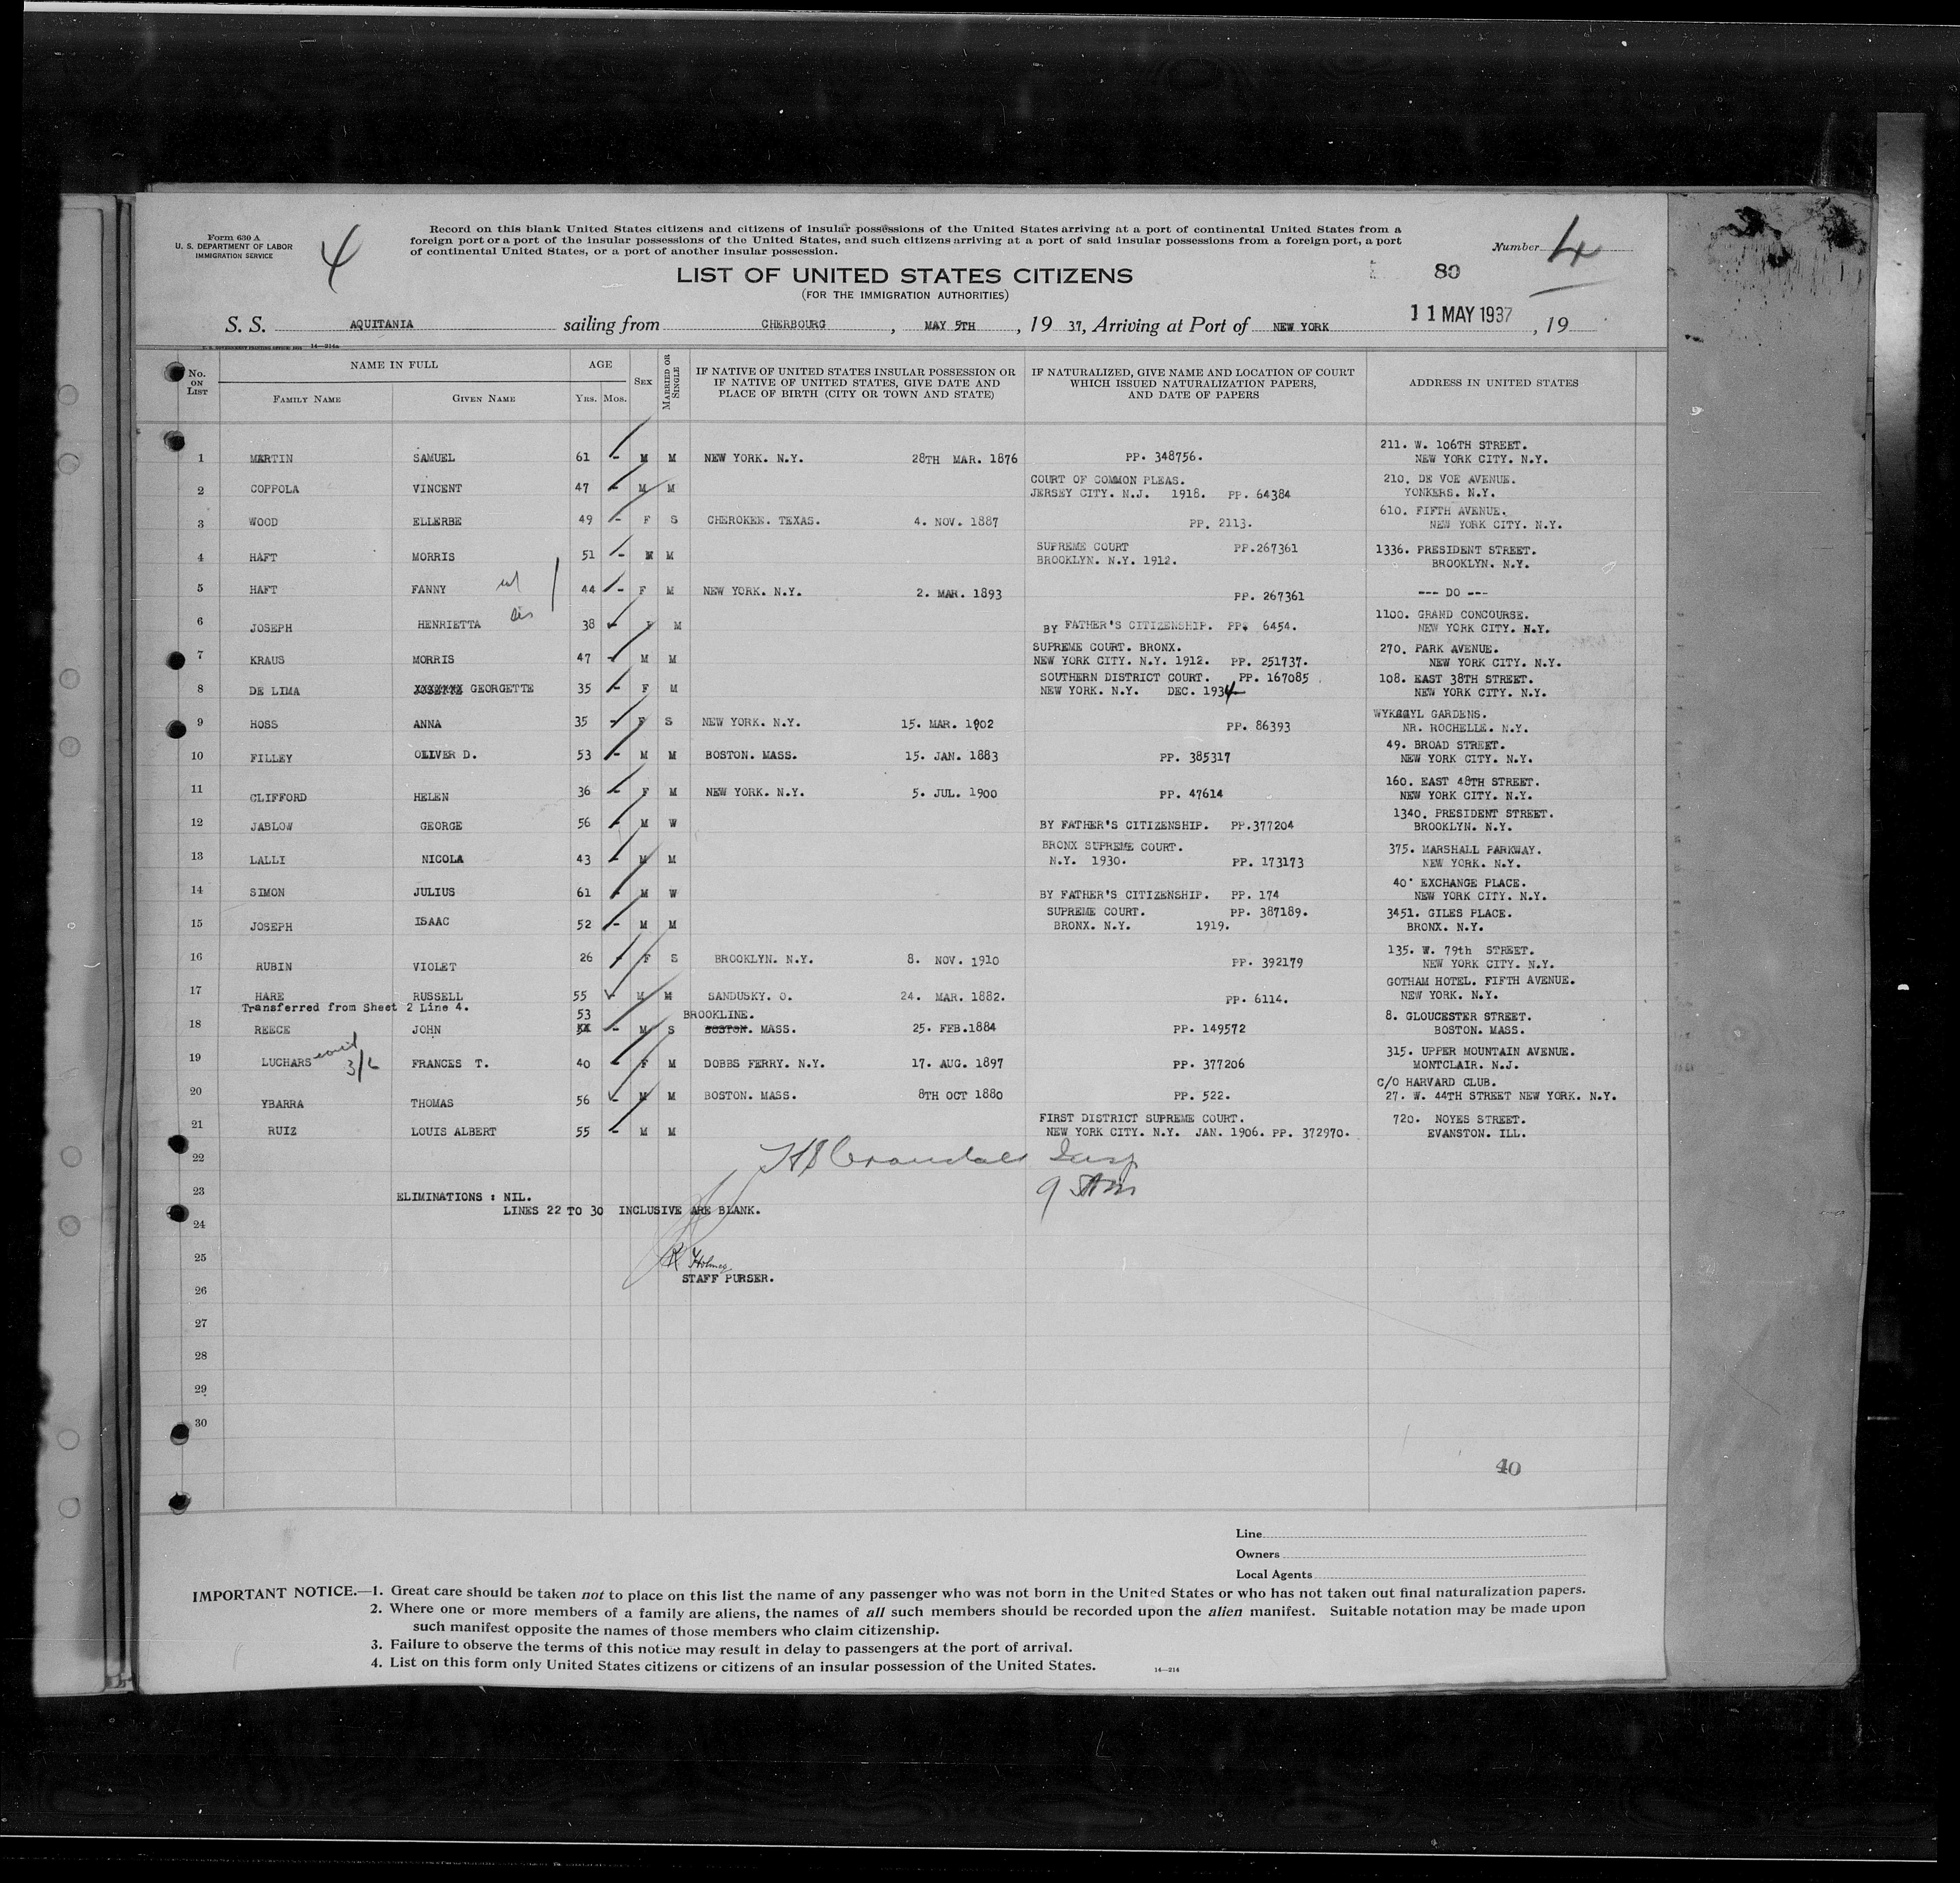 Form 630 A
U. S. DEPARTMENT OF LABOR
IMMIGRATION SERVICE
4
Record on this blank United States citizens and citizens of insular possessions of the United States arriving at a port of continental United States from a
foreign port or a port of the insular possessions of the United States, and such citizens arriving at a port of said insular possessions from a foreign port, a port
of continental United States, or a port of another insular possession.
Number 4
LIST OF UNITED STATES CITIZENS
80
(FOR THE IMMIGRATION AUTHORITIES)
S. S. AQUITANIA sailing from CHERBOURG, MAY 5TH, 19 37, Arriving at Port of NEW YORK 11 MAY 1937, 19
No. ON LIST
NAME IN FULL
FAMILY NAME GIVEN NAME
AGE
YRS. MOS.
SEX
MARRIED OR SINGLE
IF NATIVE OF UNITED STATES INSULAR POSSESSION OR
IF NATIVE OF UNITED STATES, GIVE DATE AND
PLACE OF BIRTH (CITY OR TOWN AND STATE)
IF NATURALIZED, GIVE NAME AND LOCATION OF COURT
WHICH ISSUED NATURALIZATION PAPERS,
AND DATE OF PAPERS
ADDRESS IN UNITED STATES
211. W. 106TH STREET.
1 MARTIN SAMUEL 61 - M M NEW YORK. N.Y. 28TH MAR. 1876 PP. 348756. NEW YORK CITY. N.Y.
COURT OF COMMON PLEAS. 210. DE VOE AVENUE.
2 COPPOLA VINCENT 47 - M M JERSEY CITY. N.J. 1918. PP. 64384 YONKERS. N.Y.
610. FIFTH AVENUE.
3 WOOD ELLERBE 49 - F S CHEROKEE. TEXAS. 4. NOV. 1887 PP. 2113. NEW YORK CITY. N.Y.
SUPREME COURT PP.267361 1336. PRESIDENT STREET.
4 HAFT MORRIS 51 - M M BROOKLYN. N.Y. 1912. BROOKLYN. N.Y.
5 HAFT FANNY 44 - F M NEW YORK. N.Y. 2. MAR. 1893 PP. 267361 --- DO ---
1100. GRAND CONCOURSE.
6 JOSEPH HENRIETTA 38 - F M BY FATHER'S CITIZENSHIP. PP. 6454. NEW YORK CITY. N.Y.
SUPREME COURT. BRONX. 270. PARK AVENUE.
7 KRAUS MORRIS 47 - M M NEW YORK CITY. N.Y. 1912. PP. 251737. NEW YORK CITY. N.Y.
SOUTHERN DISTRICT COURT. PP. 167085 108. EAST 38TH STREET.
8 DE LIMA GEORGETTE 35 - F M NEW YORK. N.Y. DEC. 1934 NEW YORK CITY. N.Y.
WYKAGYL GARDENS.
9 HOSS ANNA 35 - F S NEW YORK. N.Y. 15. MAR. 1902 PP. 86393 NR. ROCHELLE. N.Y.
49. BROAD STREET.
10 FILLEY OLIVER D. 53 - M M BOSTON. MASS. 15. JAN. 1883 PP. 385317 NEW YORK CITY. N.Y.
160. EAST 48TH STREET.
11 CLIFFORD HELEN 36 - F M NEW YORK. N.Y. 5. JUL. 1900 PP. 47614 NEW YORK CITY. N.Y.
1340. PRESIDENT STREET.
12 JABLOW GEORGE 56 - M W BY FATHER'S CITIZENSHIP. PP.377204 BROOKLYN. N.Y.
BRONX SUPREME COURT. 375. MARSHALL PARKWAY.
13 LALLI NICOLA 43 - M M N.Y. 1930. PP. 173173 NEW YORK. N.Y.
40' EXCHANGE PLACE.
14 SIMON JULIUS 61 - M W BY FATHER'S CITIZENSHIP. PP. 174 NEW YORK CITY. N.Y.
SUPREME COURT. PP. 387189. 3451. GILES PLACE.
15 JOSEPH ISAAC 52 - M M BRONX. N.Y. 1919. BRONX. N.Y.
135. W. 79th STREET.
16 RUBIN VIOLET 26 - F S BROOKLYN. N.Y. 8. NOV. 1910 PP. 392179 NEW YORK CITY. N.Y.
GOTHAM HOTEL. FIFTH AVENUE.
17 HARE RUSSELL 55 - M M SANDUSKY. O. 24. MAR. 1882. PP. 6114. NEW YORK. N.Y.
Transferred from Sheet 2 Line 4.
53 BROOKLINE. 8. GLOUCESTER STREET.
18 REECE JOHN - M S BOSTON. MASS. 25. FEB.1884 PP. 149572 BOSTON. MASS.
315. UPPER MOUNTAIN AVENUE.
19 LUCHARS 3/L FRANCES T. 40 - F M DOBBS FERRY. N.Y. 17. AUG. 1897 PP. 377206 MONTCLAIR. N.J.
C/O HARVARD CLUB.
20 YBARRA THOMAS 56 - M M BOSTON. MASS. 8TH OCT 1880 PP. 522. 27. W. 44TH STREET NEW YORK. N.Y.
FIRST DISTRICT SUPREME COURT. 720. NOYES STREET.
21 RUIZ LOUIS ALBERT 55 - M M NEW YORK CITY. N.Y. JAN. 1906. PP. 372970. EVANSTON. ILL.
22 Crandall Insp
23 ELIMINATIONS : NIL.
LINES 22 TO 30 INCLUSIVE ARE BLANK.
24
25 Holmes
STAFF PURSER.
26
27
28
29
30
40
Line
Owners
Local Agents
IMPORTANT NOTICE.—1. Great care should be taken not to place on this list the name of any passenger who was not born in the United States or who has not taken out final naturalization papers.
2. Where one or more members of a family are aliens, the names of all such members should be recorded upon the alien manifest. Suitable notation may be made upon
such manifest opposite the names of those members who claim citizenship.
3. Failure to observe the terms of this notice may result in delay to passengers at the port of arrival.
4. List on this form only United States citizens or citizens of an insular possession of the United States. 14—214